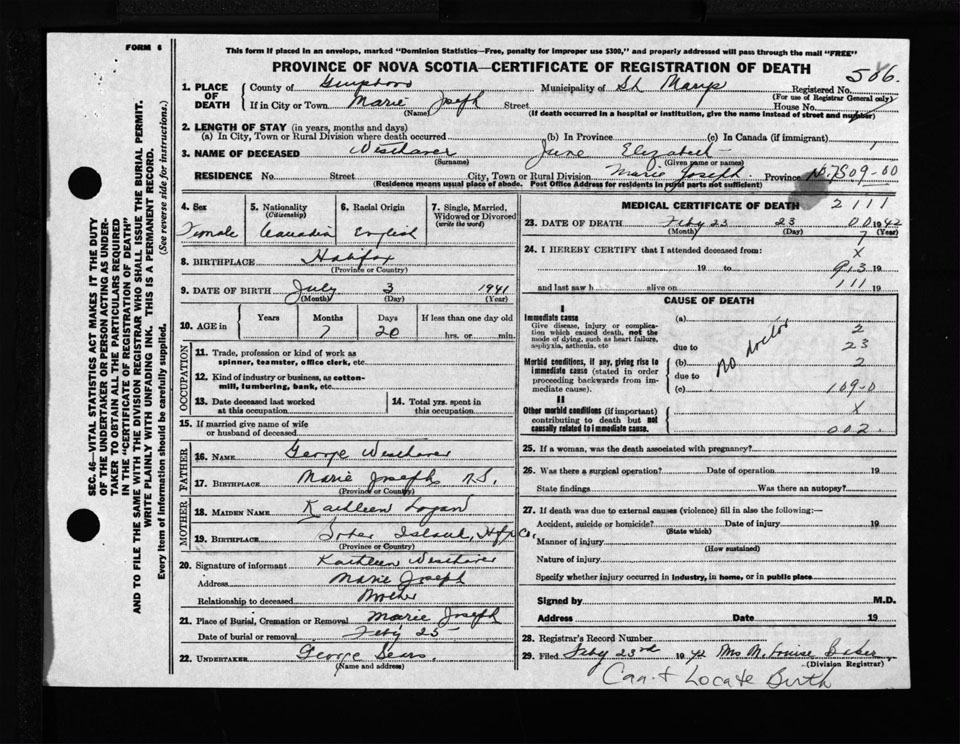 FORM 6
This form if placed in an envelope, marked "Dominion Statistics—Free, penalty for improper use $300," and properly addressed will pass through the mail "FREE"
PROVINCE OF NOVA SCOTIA—CERTIFICATE OF REGISTRATION OF DEATH
506.
1. PLACE OF DEATH
County of Guysboro Municipality of St Marys Registered No.
(For use of Registrar General only)
If in City or Town Marie Joseph Street House No.
(Name) (If death occurred in a hospital or institution, give the name instead of street and number)
2. LENGTH OF STAY (in years, months and days)
(a) In City, Town or Rural Division where death occurred (b) In Province (c) In Canada (if immigrant)
3. NAME OF DECEASED Westhaver June Elizabeth
(Surname) (Given name or names)
RESIDENCE No. Street City, Town or Rural Division Marie Joseph Province N.S. 7509-00
(Residence means usual place of abode. Post Office Address for residents in rural parts not sufficient)
4. Sex
Female
5. Nationality
(Citizenship)
Canadian
6. Racial Origin
English
7. Single, Married, Widowed or Divorced
(write the word)
8. BIRTHPLACE Halifax
(Province or Country)
9. DATE OF BIRTH July 3 1941
(Month) (Day) (Year)
10. AGE in
Years Months Days If less than one day old
7 20 hrs. or min.
OCCUPATION
11. Trade, profession or kind of work as spinner, teamster, office clerk, etc
12. Kind of industry or business, as cotton-mill, lumbering, bank, etc.
13. Date deceased last worked at this occupation
14. Total yrs. spent in this occupation
15. If married give name of wife or husband of deceased
FATHER
16. NAME George Westhaver
17. BIRTHPLACE Marie Joseph N.S.
(Province or Country)
MOTHER
18. MAIDEN NAME Kathleen Logan
19. BIRTHPLACE Sober Island, Hfx Co.
(Province or Country)
20. Signature of informant Kathleen Westhaver
Address Marie Joseph
Relationship to deceased Mother
21. Place of Burial, Cremation or Removal Marie Joseph
Date of burial or removal Feby 25
22. UNDERTAKER George Sears.
(Name and address)
MEDICAL CERTIFICATE OF DEATH 2111
23. DATE OF DEATH Feby 23 23 00 1942
(Month) (Day) (Year)
7
24. I HEREBY CERTIFY that I attended deceased from:
X
19 to 913 19
and last saw h alive on 111 19
CAUSE OF DEATH
I
Immediate cause
Give disease, injury or complication which caused death, not the mode of dying, such as heart failure, asphyxia, asthenia, etc
(a) 2
due to 23
Morbid conditions, if any, giving rise to immediate cause (stated in order proceeding backwards from immediate cause).
(b) 2
due to
(c) 109-0
no doctor
II
Other morbid conditions (if important) contributing to death but not causally related to immediate cause.
X
002.
25. If a woman, was the death associated with pregnancy?
26. Was there a surgical operation? Date of operation 19
State findings Was there an autopsy?
27. If death was due to external causes (violence) fill in also the following:—
Accident, suicide or homicide? Date of injury 19
(State which)
Manner of injury
(How sustained)
Nature of injury
Specify whether injury occurred in industry, in home, or in public place
Signed by M.D.
Address Date 19
28. Registrar's Record Number
29. Filed Feby 23rd 1942 Mrs M. Louise Baker
(Division Registrar)
Can't Locate Birth
SEC. 46—VITAL STATISTICS ACT MAKES IT THE DUTY
OF THE UNDERTAKER OR PERSON ACTING AS UNDER-
TAKER TO OBTAIN ALL THE PARTICULARS REQUIRED
IN THE "CERTIFICATE OF REGISTRATION OF DEATH"
AND TO FILE THE SAME WITH THE DIVISION REGISTRAR WHO SHALL ISSUE THE BURIAL PERMIT.
WRITE PLAINLY WITH UNFADING INK. THIS IS A PERMANENT RECORD.
Every item of information should be carefully supplied. (See reverse side for instructions.)